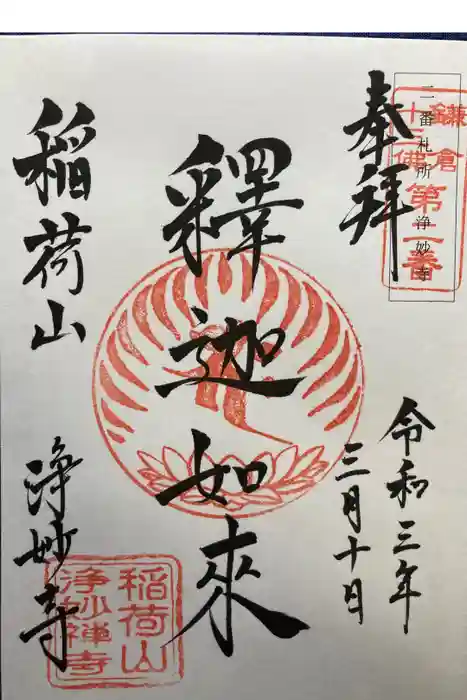 奉拝
二番札所浄妙寺
鎌倉
十三佛
第二番
令和三年
三月十日
釋迦如來
稲荷山
浄妙寺
稲荷山
浄妙禅寺